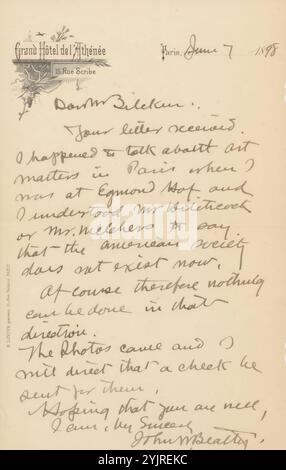 Grand Hôtel de l'Athénée
15 Rue Scribe
Paris, June 7 1898
Dear Mr Bilcken:
Your letter received.
I happened to talk about art
matters in Paris when I
was at Egmond Hof and
I understood Mr Hitchcock
or Mr. Melchers to say
that the American society
does not exist now.
Of course therefore nothing
can be done in that
direction.
The Photos came and I
will direct that a check be
sent for them.
Hoping that you are well,
I am, Very Sincerely
John W Beatty.
alamy
Image ID: 2YJREKC
www.alamy.com